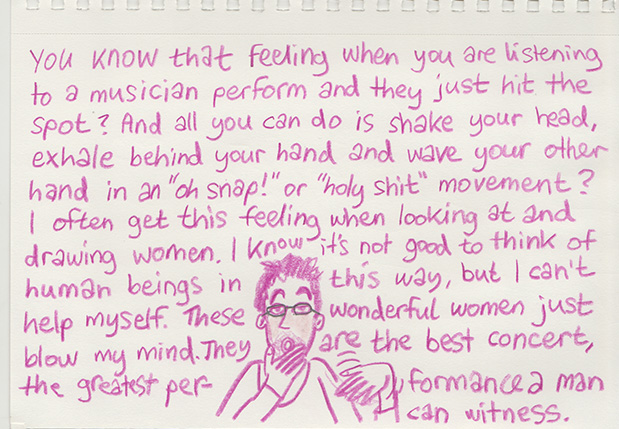 You know that feeling when you are listening
to a musician perform and they just hit the
spot? And all you can do is shake your head,
exhale behind your hand and wave your other
hand in an "oh snap!" or "holy shit" movement?
I often get this feeling when looking at and
drawing women. I know it's not good to think of
human beings in this way, but I can't
help myself. These wonderful women just
blow my mind. They are the best concert,
the greatest per- formance a man
can witness.